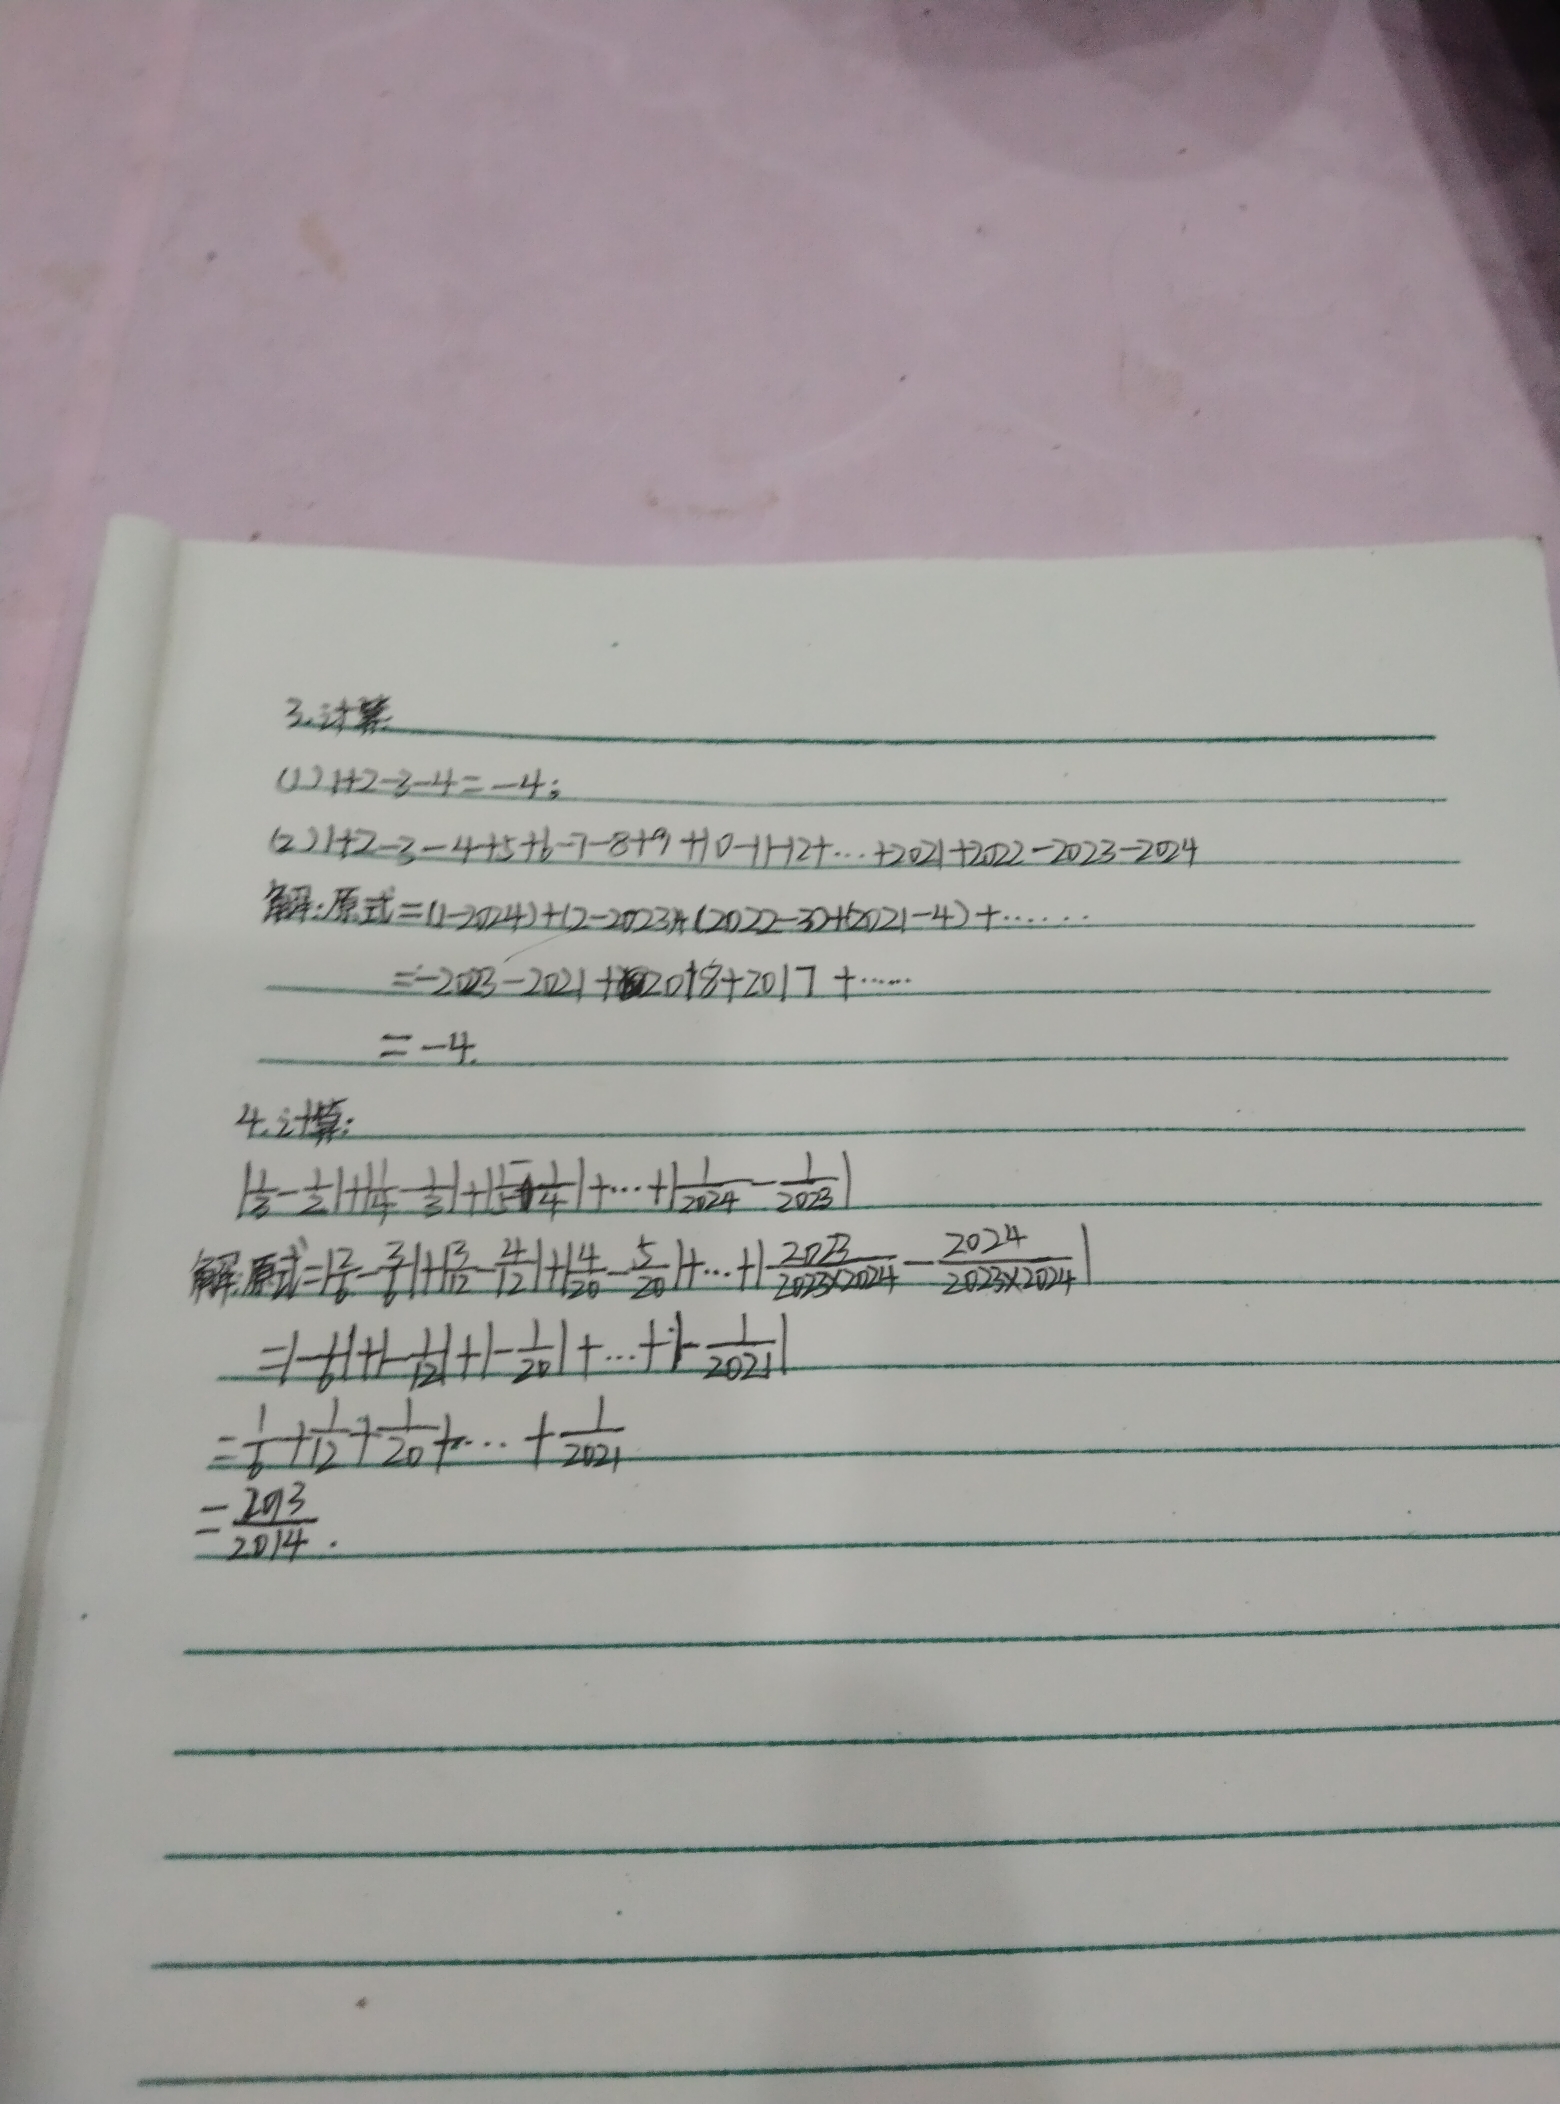 3.计算
(1)1+2-3-4=-4;
(2)1+2-3-4+5+6-7-8+9+10-11-12+…+2021+2022-2023-2024
解:原式=(1-2024)+(2-2023)+(2022-3)+(2021-4)+……
=-2023-2021+2018+2017+……
=-4.
4.计算:
|1/3-1/2|+|1/4-1/3|+|1/5-1/4|+…+|1/2024-1/2023|
解:原式=|2/6-3/6|+|3/12-4/12|+|4/20-5/20|+…+|2023/2023×2024-2024/2023×2024|
=|-1/6|+|-1/12|+|-1/20|+…+|-1/2021|
=1/6+1/12+1/20+…+1/2021
=2013/2014.